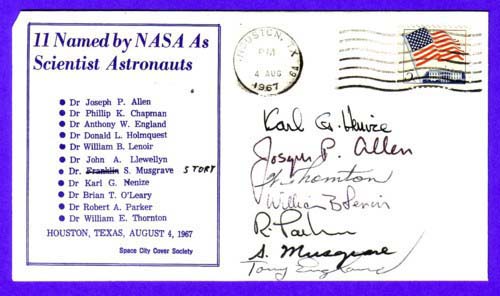 11 Named by NASA As
Scientist Astronauts
Dr Joseph P. Allen
Dr Phillip K. Chapman
Dr Anthony W. England
Dr Donald L. Holmquest
Dr William B. Lenoir
Dr John A. Llewellyn
Dr. Franklin S. Musgrave STORY
Dr Karl G. Nenize
Dr Brian T. O'Leary
Dr Robert A. Parker
Dr William E. Thornton
HOUSTON, TEXAS, AUGUST 4, 1967
Space City Cover Society
HOUSTON, TX
PM
4 AUG
1967
Karl G. Henize
Joseph P. Allen
Thornton
William B Lenoir
R. Parker
S. Musgrave
Tony England